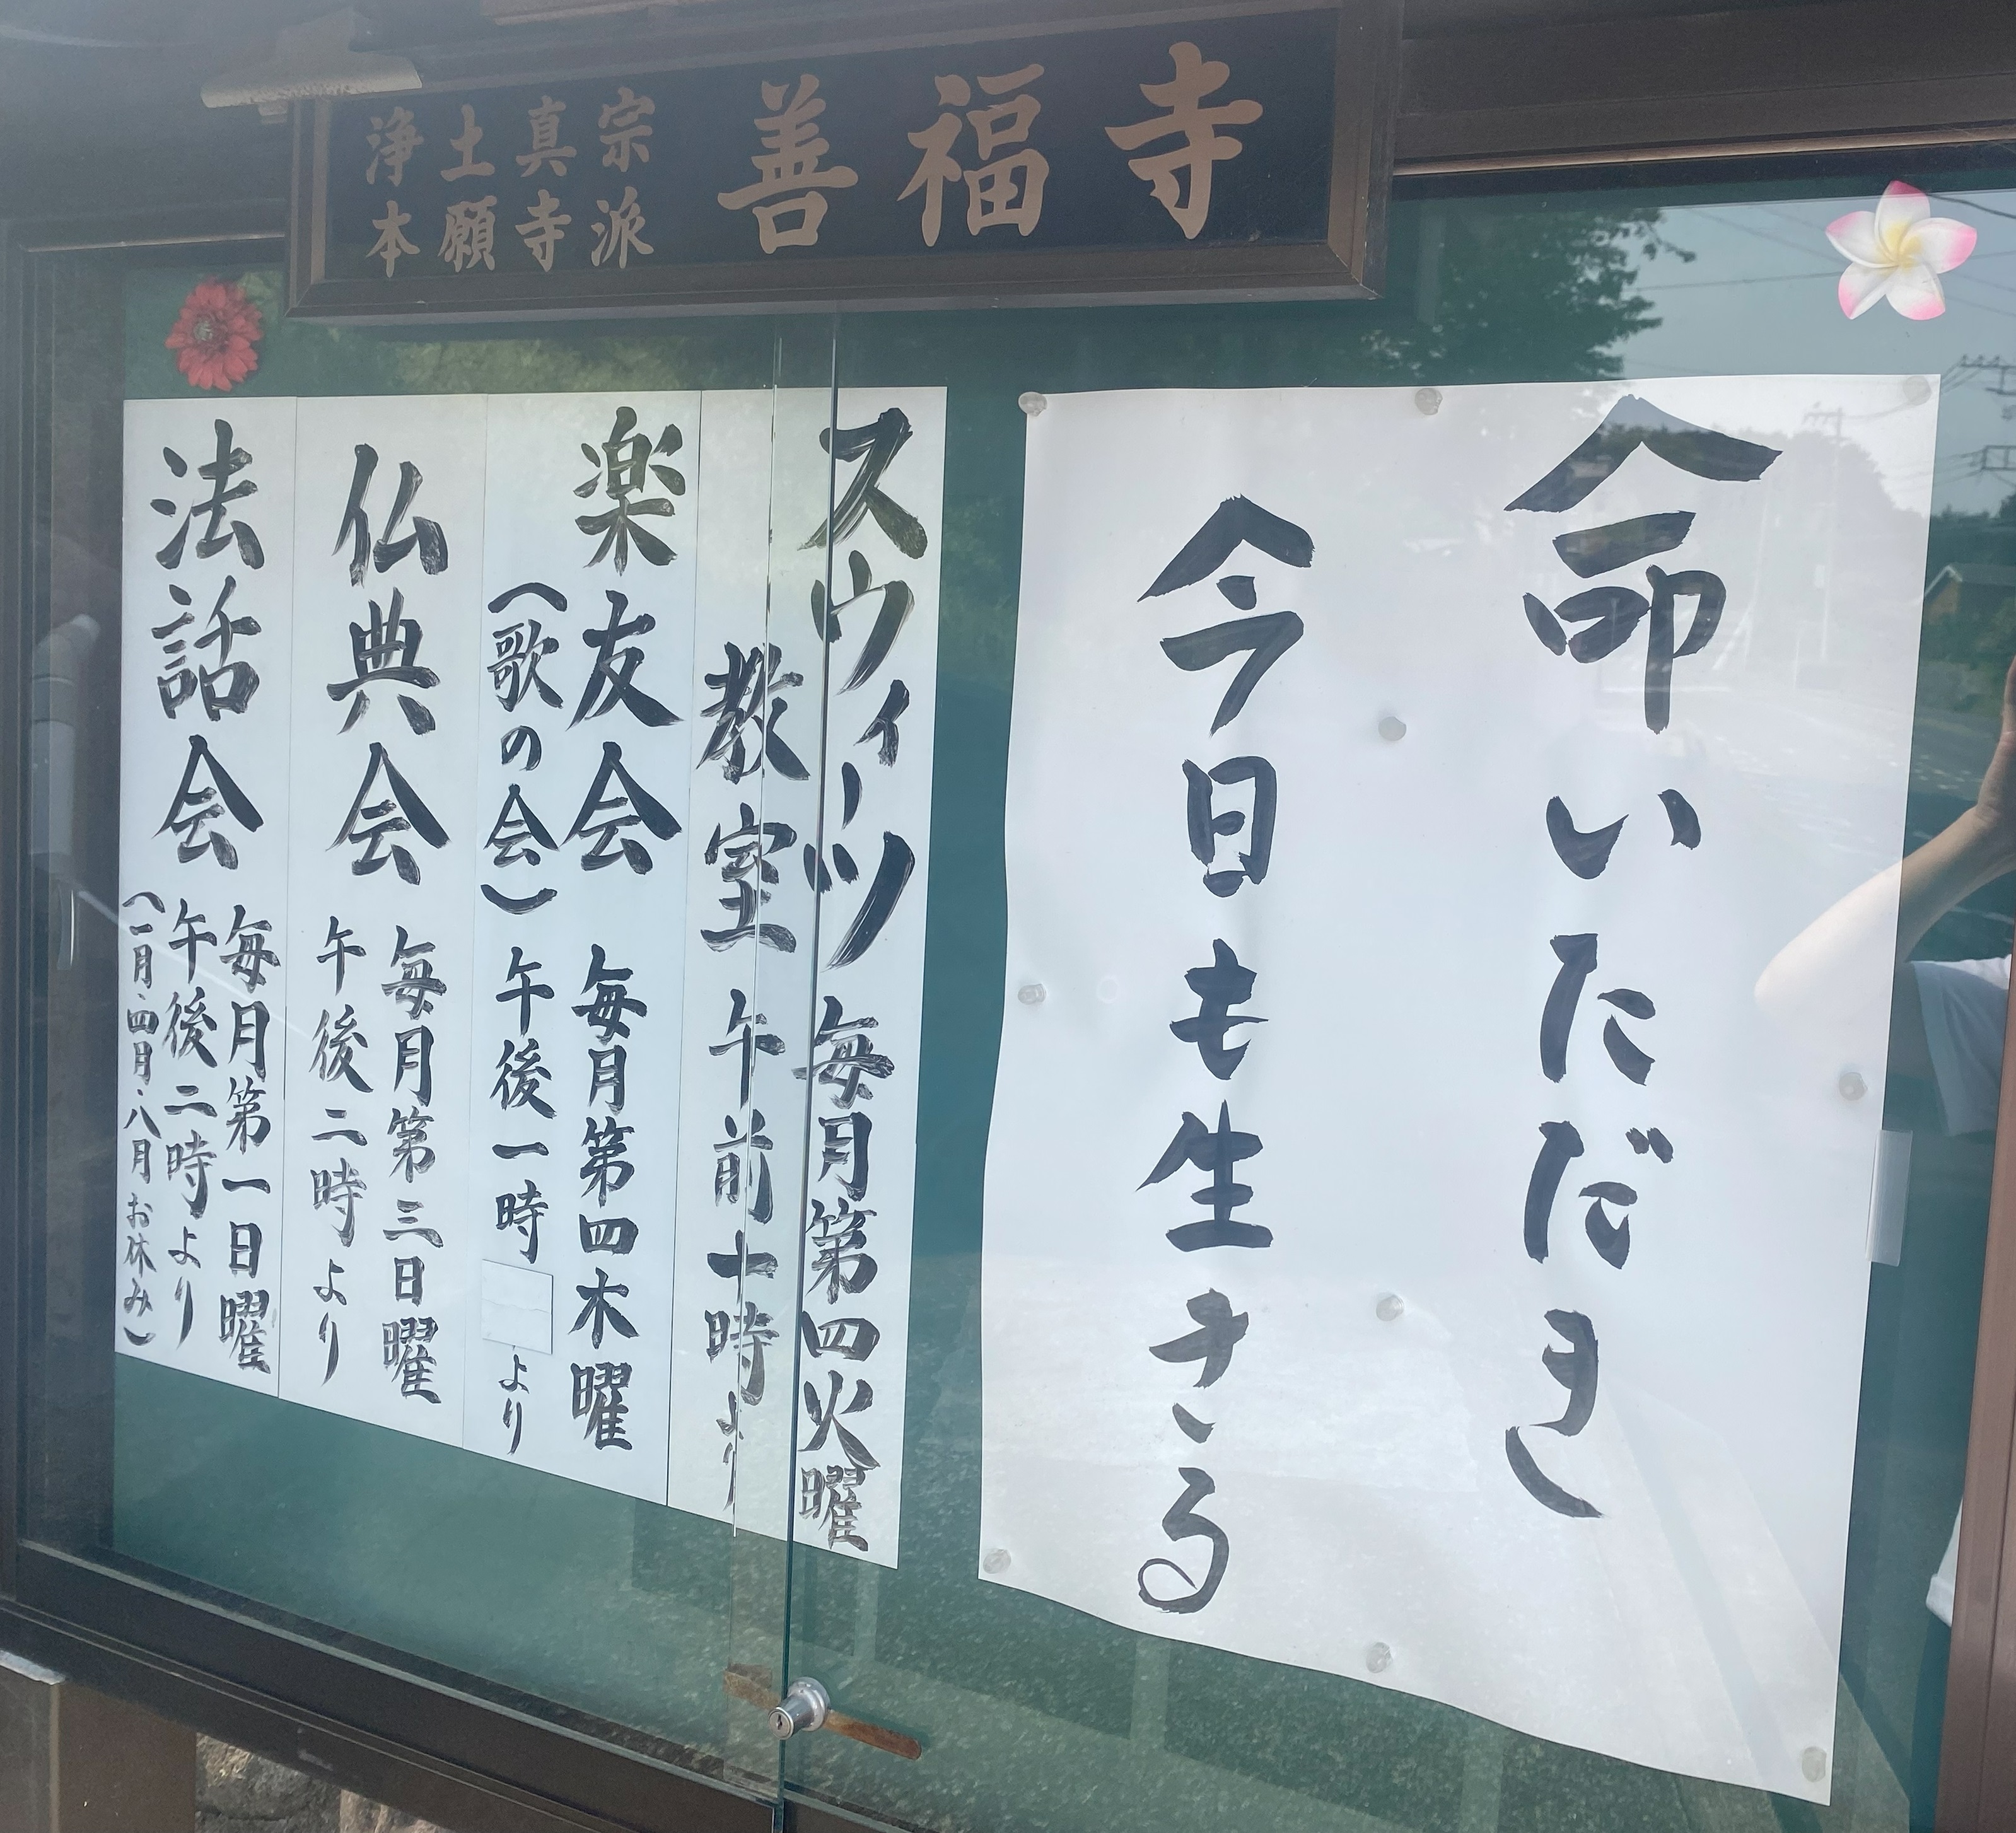 善福寺
浄土真宗
本願寺派
命いただき
今日も生きる
スウィーツ
教室
毎月第四火曜
午前十時より
楽友会
(歌の会)
毎月第四木曜
午後一時より
仏典会
毎月第三日曜
午後二時より
法話会
毎月第一日曜
午後二時より
(一月、四月、八月お休み)